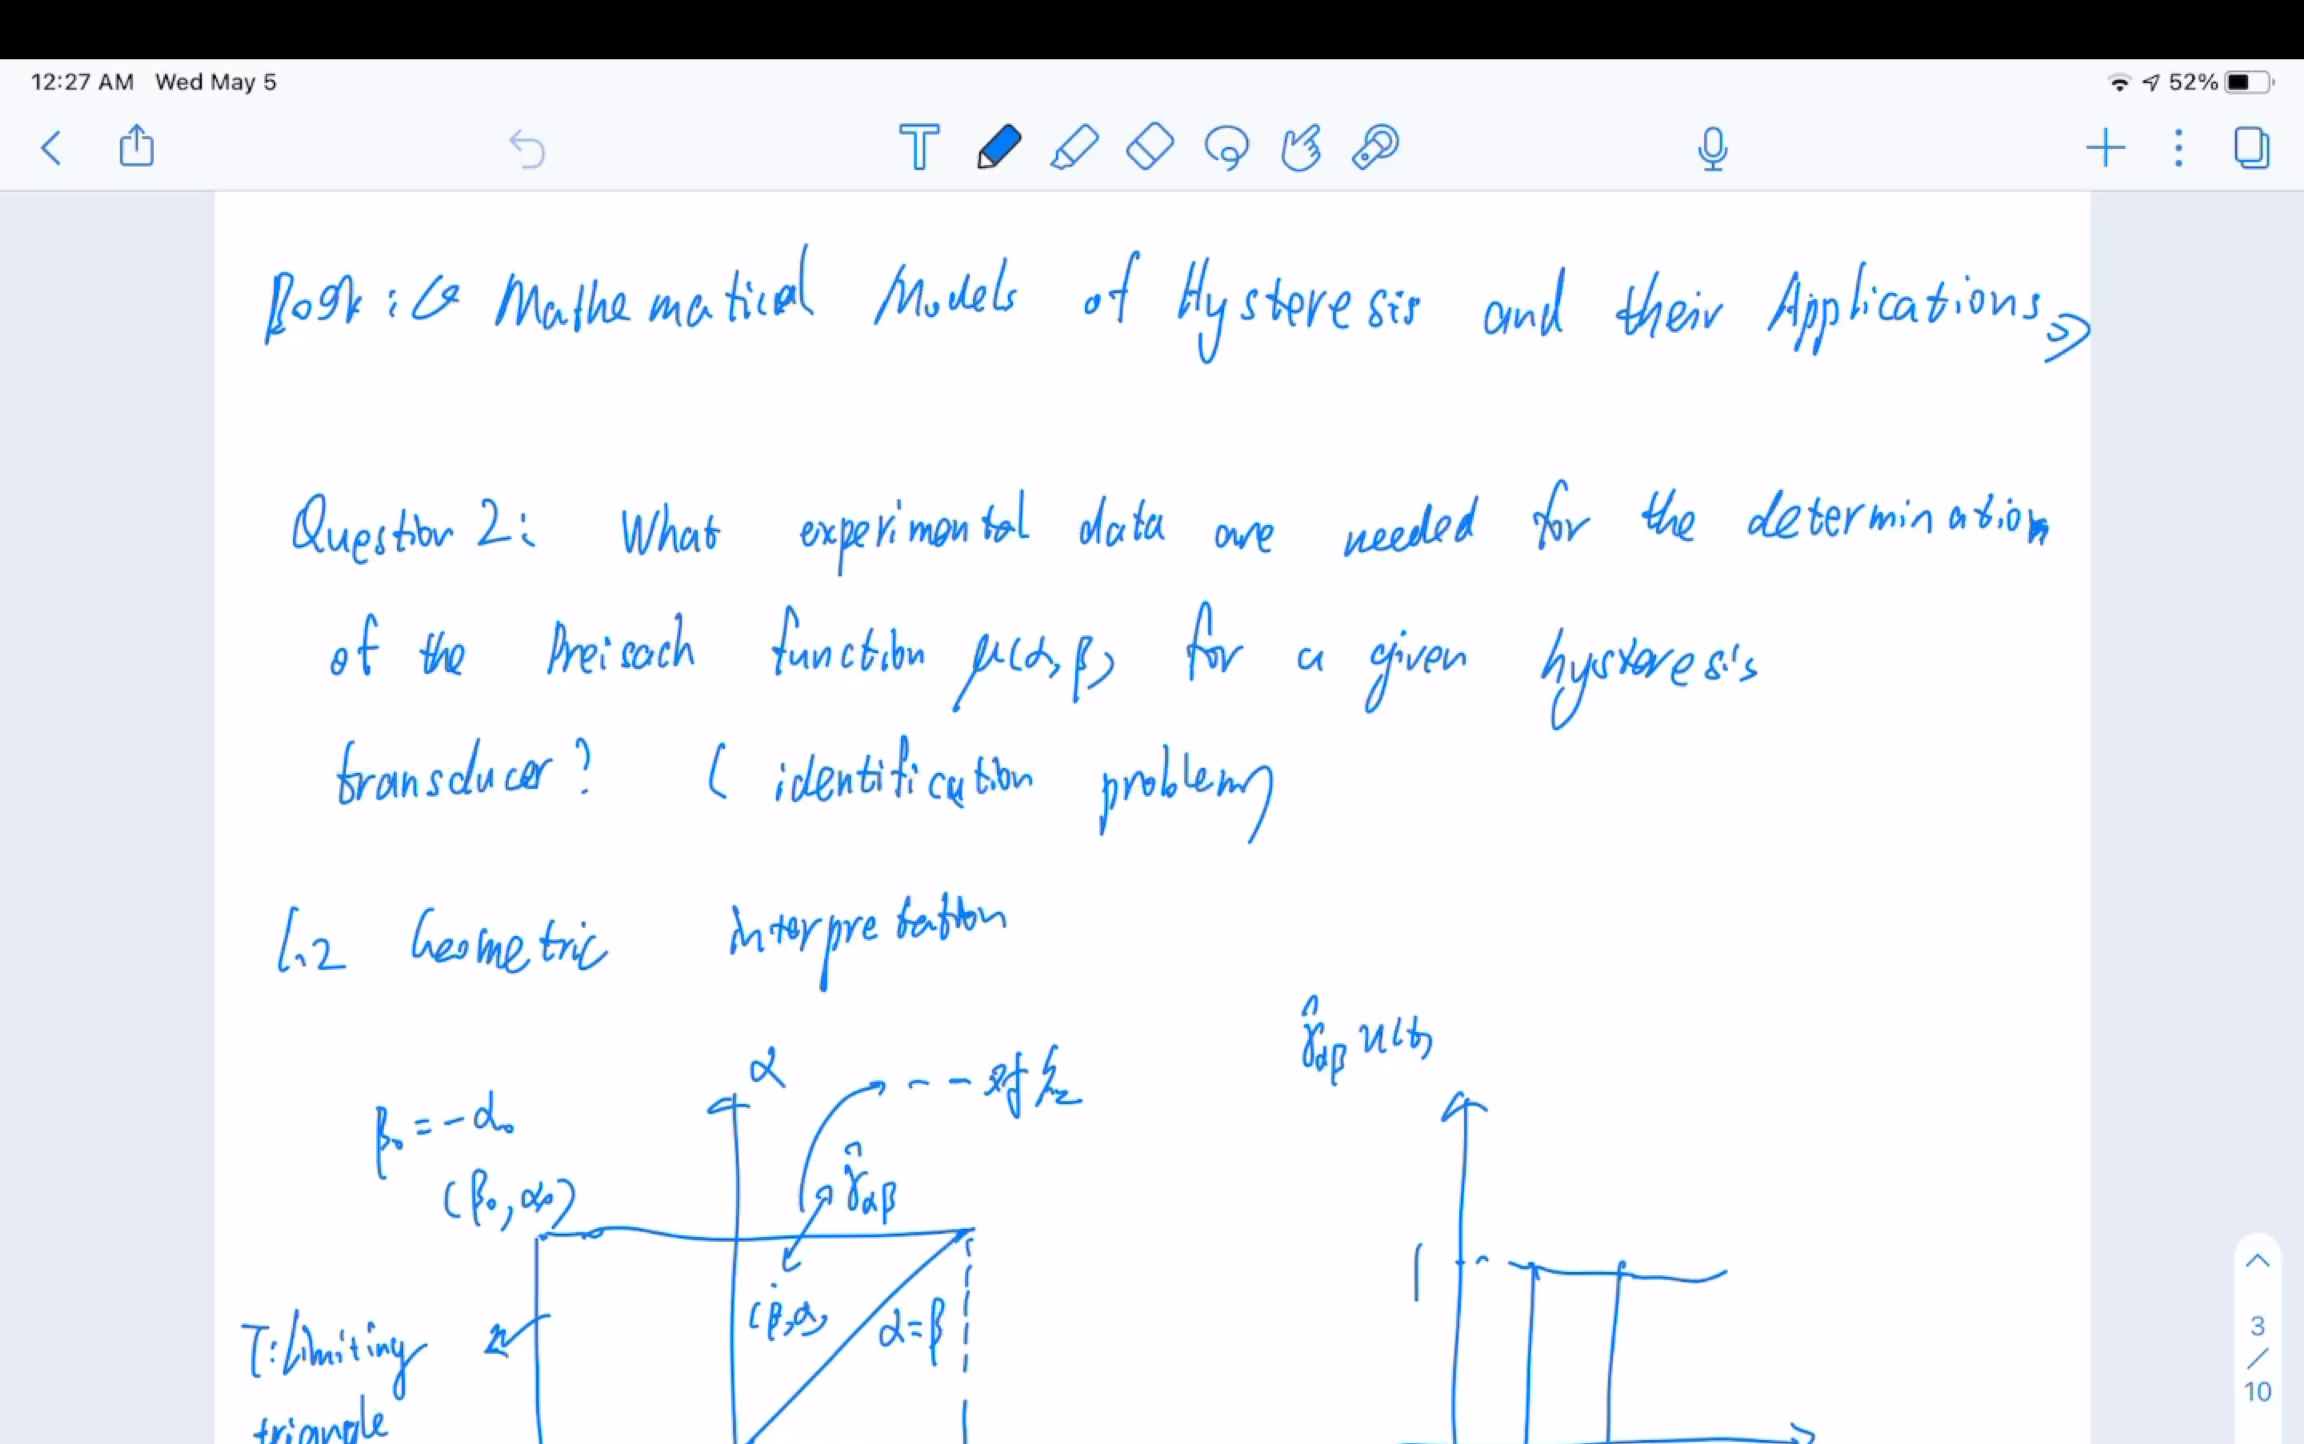 12:27 AM Wed May 5
52%
T
Book: 《 Mathematical Models of Hysteresis and their Applications 》
Question 2: What experimental data are needed for the determination
of the Preisach function μ(α,β) for a given hysteresis
transducer? ( identification problem)
1.2 Geometric interpretation
α
一一对应
γ̂αβ u(t)
β₀ = -α₀
(β₀, α₀)
γ̂αβ
(β,α)
α=β
1
T: limiting
triangle
3
/
10